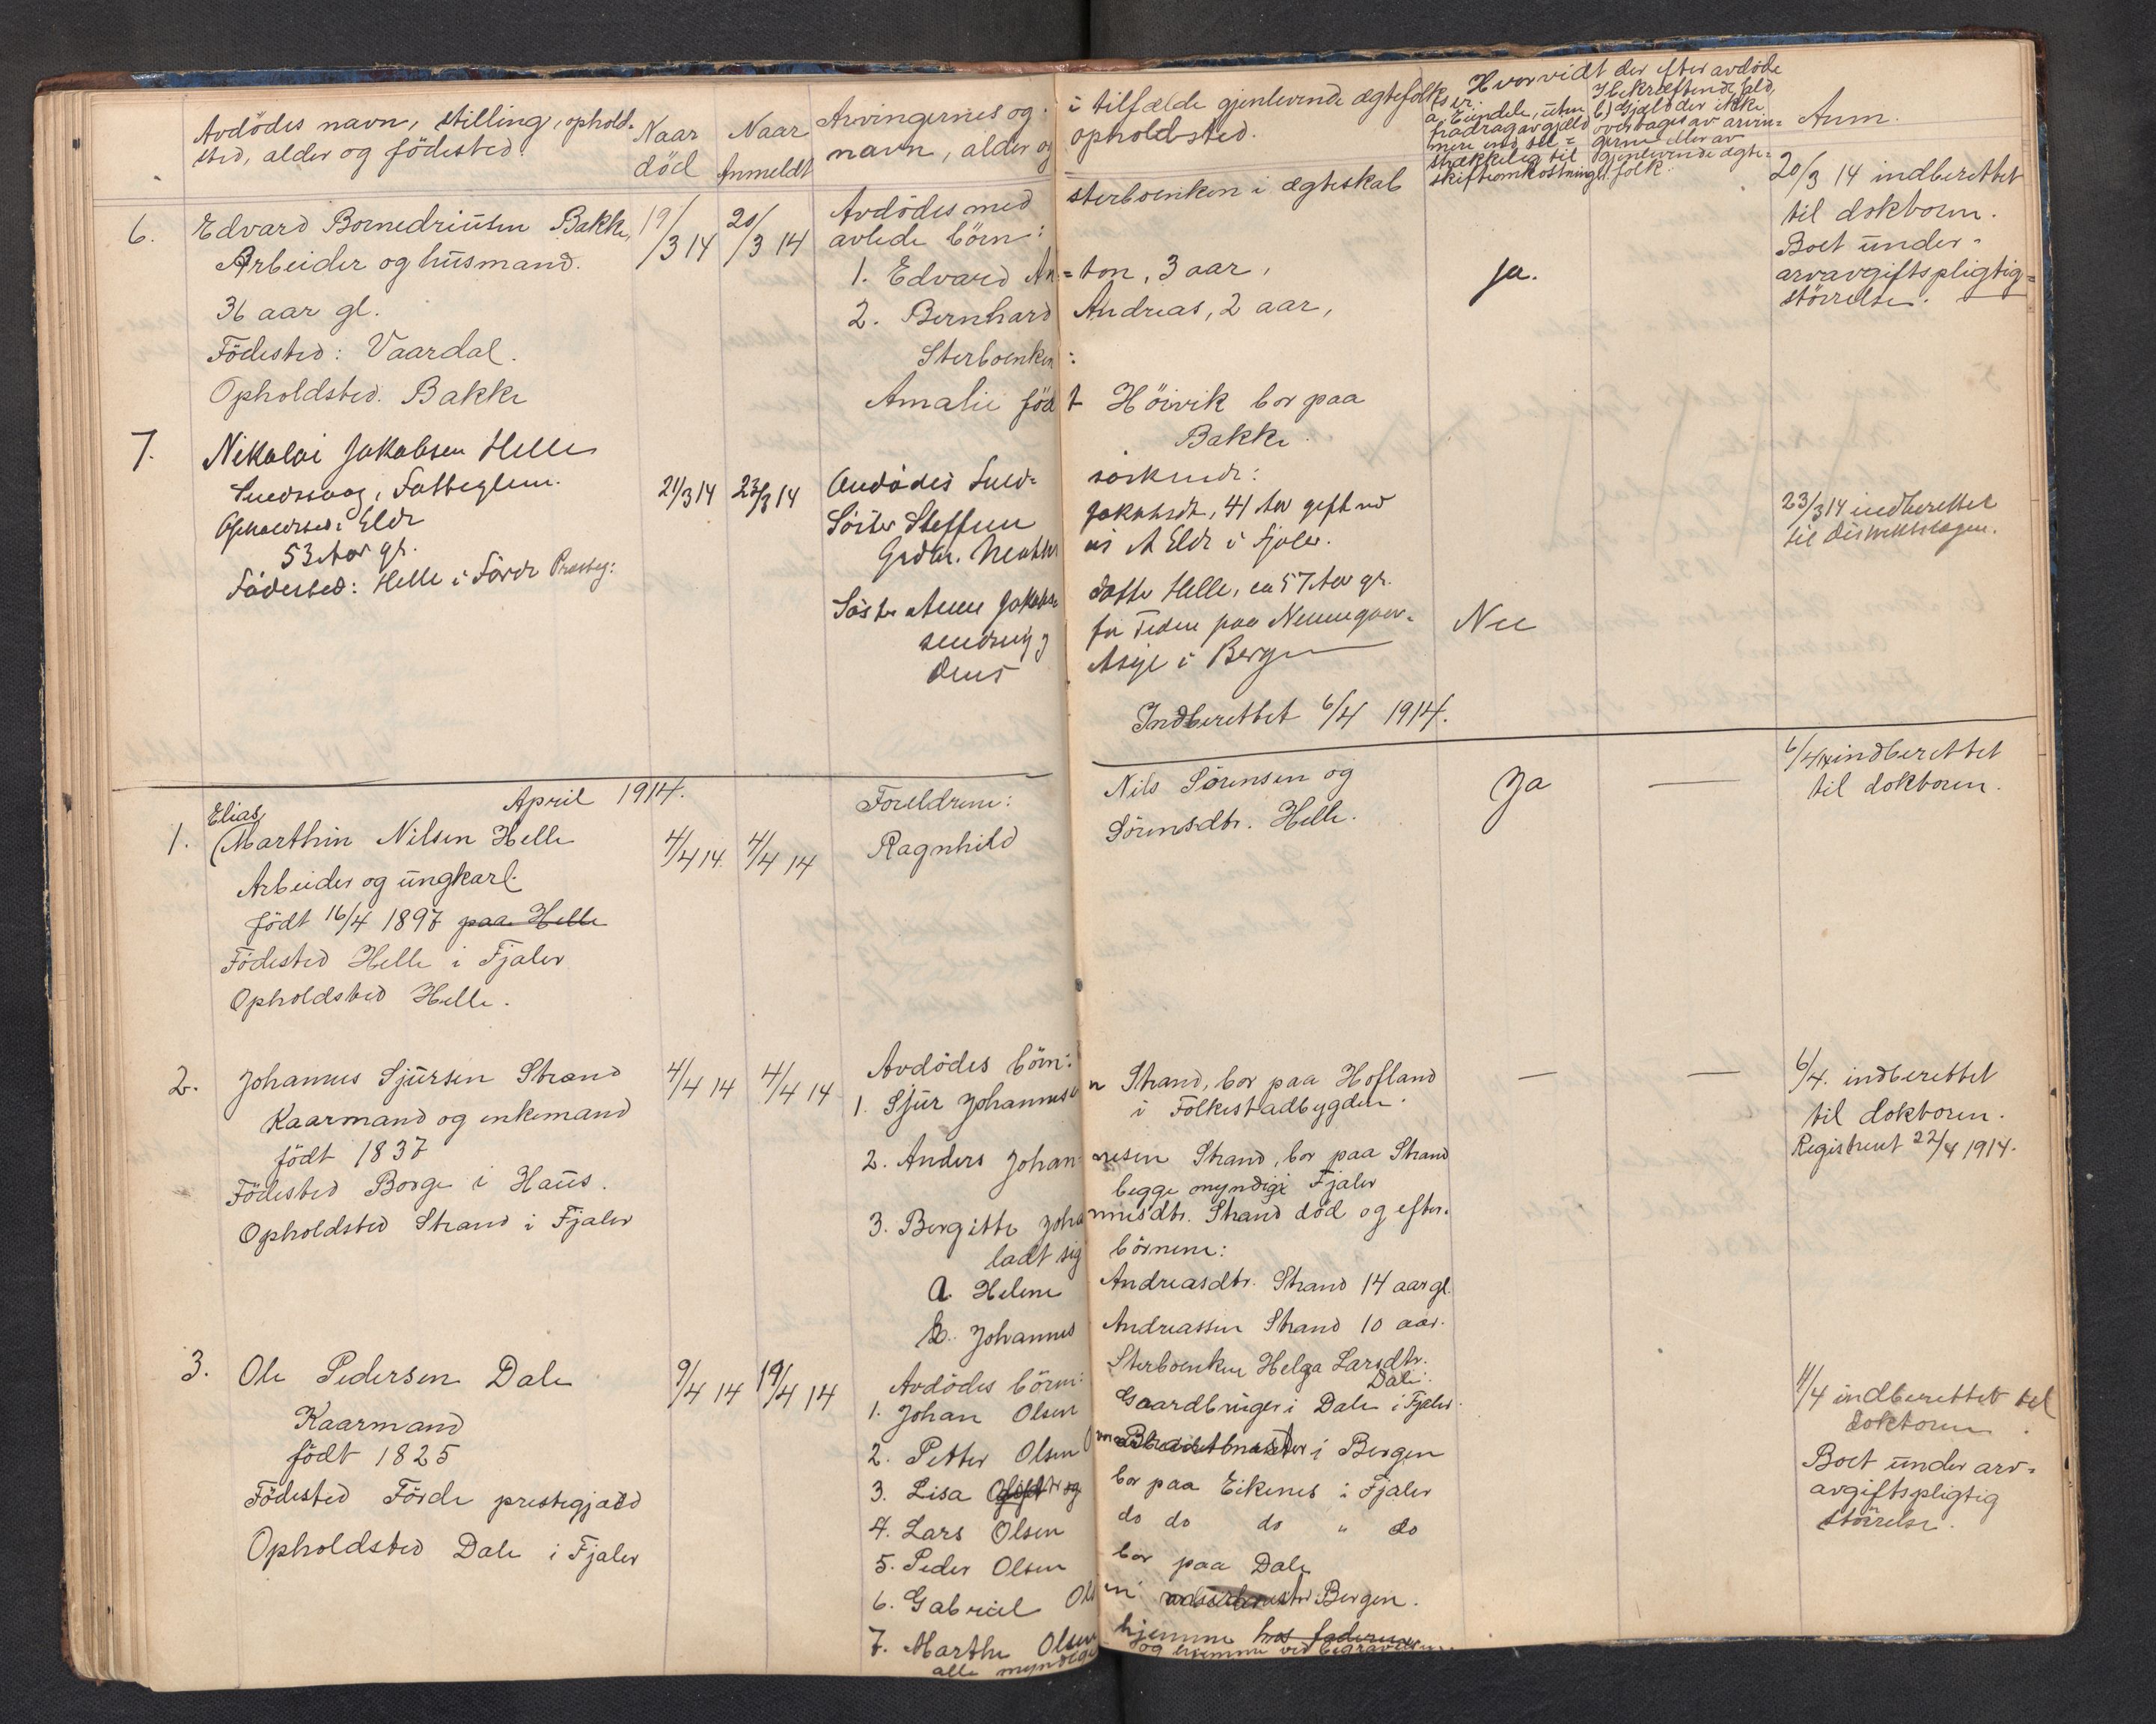 Avdödes navn, stilling, ophold-
sted, alder og födested.
Naar
död
Naar
Anmeldt
Arvingernes og i tilfælde gjenlevende ægtefolks
navn, alder og opholdsted.
Hvorvidt der efter avdöde
er:
a, Eiendele, uten
fradrag av gjæld
mere end til-
strækkelig til
skifteomkostning.
b) Gjæld der ikke
overtages av arvin-
gerne eller av
gjenlevende ægte-
folk.
Anm.
6.
Edvard Bornedriusen Bakke,
Arbeider og husmand.
36 aar gl.
Födested: Vaardal.
Opholdsted. Bakke
19/3 14
20/3 14
Avdödes med sterboenken i ægteskab
avlede börn:
1. Edvard An=ton, 3 aar,
2. Bernhard Andreas, 2 aar,
Sterboenken:
Amalie född Höivik bor paa
Bakke.
ja.
20/3 14 indberettet
til doktoren.
Boet under-
arvavgiftspligtig=
störrelse.
7.
Nikolai Jakobsen Helle
Fattiglem.
Opholdsted: Elde
53 Aar gl.
Födested: Helle i Förde Præsteg:
21/3 14
23/3 14
Avdödes söskende:
Söster Steffine Jakobsdt, 41 Aar gift med
Grdbr. i Fjaler.
Söster Anne Jakobsdatter Helle, ca 57 Aar gl.
for Tiden paa
Asyl i Bergen
Indberettet 6/4 1914.
Nei
23/3 14 indberettet
til Distriktslægen.
April 1914.
1.
Elias
(Marthin Nilsen Helle
Arbeider og ungkarl.
född 16/4 1897 paa Helle
Födested Helle i Fjaler
Opholdsted Helle.
4/4 14.
4/4 14
Foreldrene: Nils Sörensen og
Ragnhild Sörensdtr. Helle.
Ja
—
6/4 14 indberettet
til doktoren.
2.
Johannes Sjursen Strand
Kaarmand og enkemand
född 1837
Födested Borge i Haus.
Opholdsted Strand i Fjaler
4/4 14
4/4 14
Avdödes börn:
1. Sjur Johannesen Strand, bor paa Hofland
i Folkestadbygden.
2. Anders Johannesen Strand, bor paa Strand
begge myndige Fjaler
3. Bergitte Johannesdtr. Strand död og efter-
ladt sig börnene:
a. Helene Andreasdtr. Strand 14 aar gl.
b. Johannes Andreassen Strand 10 aar.
—
—
6/4. indberettet
til doktoren.
Registreret 22/4 1914.
3.
Ole Pedersen Dale
Kaarmand
född 1825
Födested Förde prestegjæld
Opholdsted Dale i Fjaler
9/4 14
19/4 14
Sterboenken Helga Larsdtr.
Dale.
Avdödes börn:
1. Johan Olsen Gaardbruger i Dale i Fjaler.
2. Petter Olsen i Bergen
3. Lisa bor paa Eikenes i Fjaler
4. Lars Olsen do do do " do
5. Peder Olsen bor paa Dale
6. Gabriel Olsen i Bergen.
7. Marthe Olsen hjemme hos faderen
alle myndige og hjemme ved begravelsen.
11/4 indberettet til
doktoren.
Boet under arv-
avgiftspligtig
störrelse.